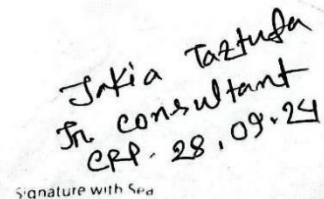 Jakia Taztufa
Jr. consultant
CRP. 28.09.24
Signature with Sea